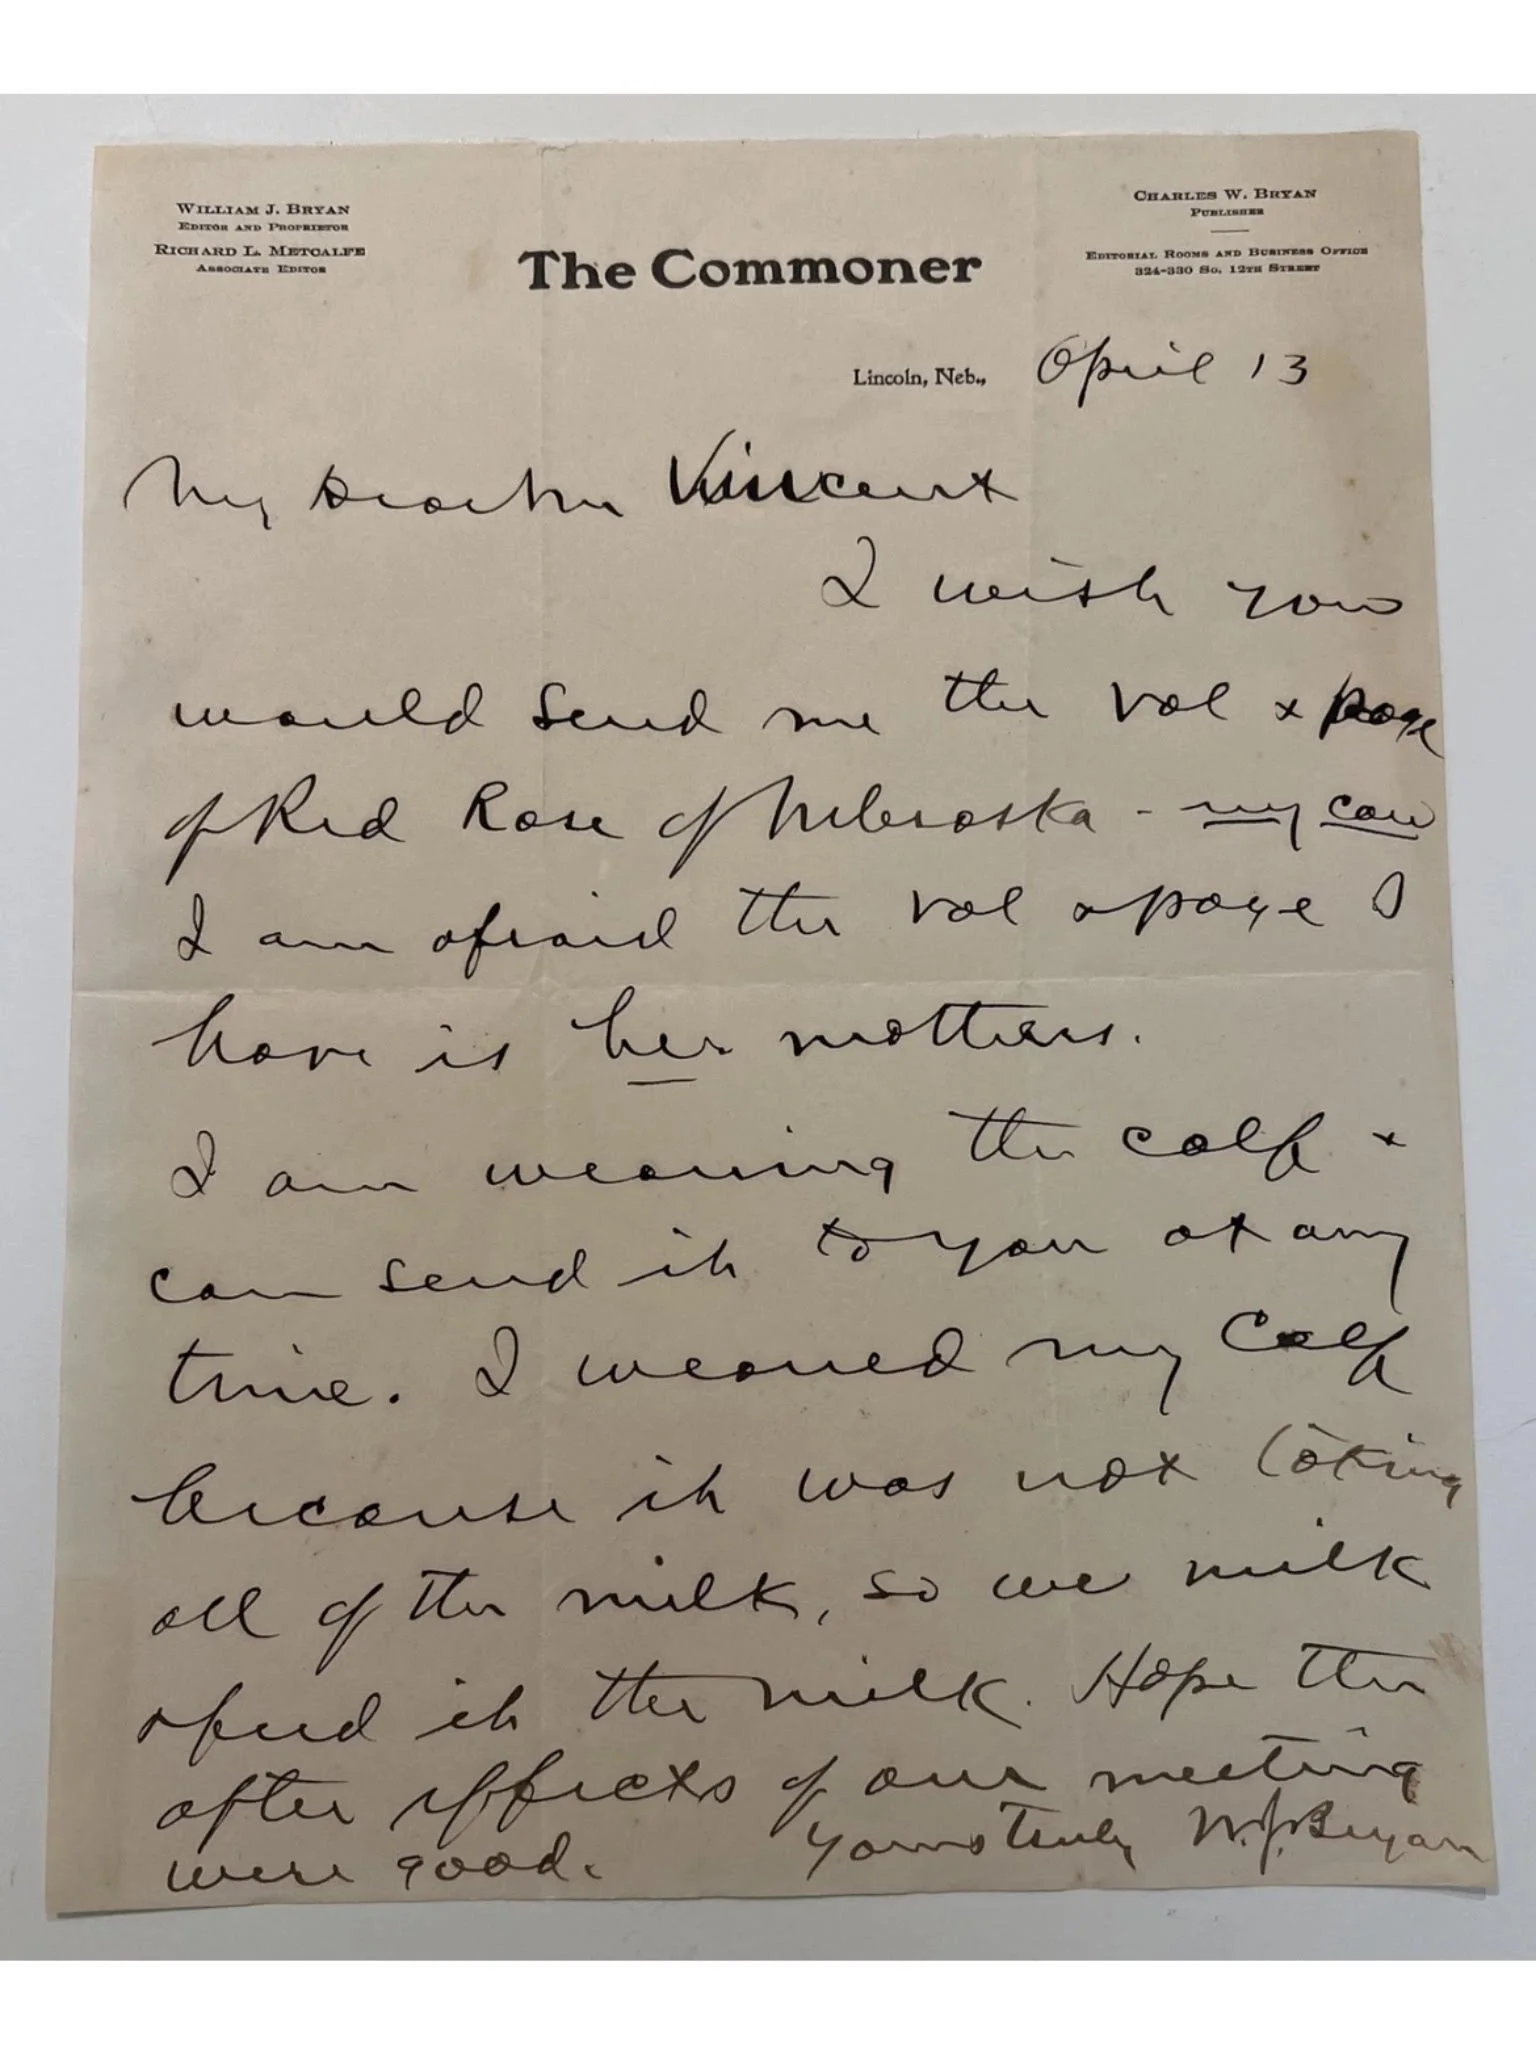 WILLIAM J. BRYAN
EDITOR AND PROPRIETOR
RICHARD L. METCALFE
ASSOCIATE EDITOR
The Commoner
CHARLES W. BRYAN
PUBLISHER
EDITORIAL ROOMS AND BUSINESS OFFICE
324-330 So. 12TH STREET
Lincoln, Neb., April 13
My Dear Mr Vincent
I wish you
would send me the vol & page
of Red Rose of Nebraska - my cow
I am afraid the vol & page I
have is her mothers.
I am weaning the calf &
can send it to you at any
time. I weaned my Calf
because it was not taking
all of the milk, so we milk
& feed it the milk. Hope the
after effects of our meeting
were good. Yours truly W. J. Bryan